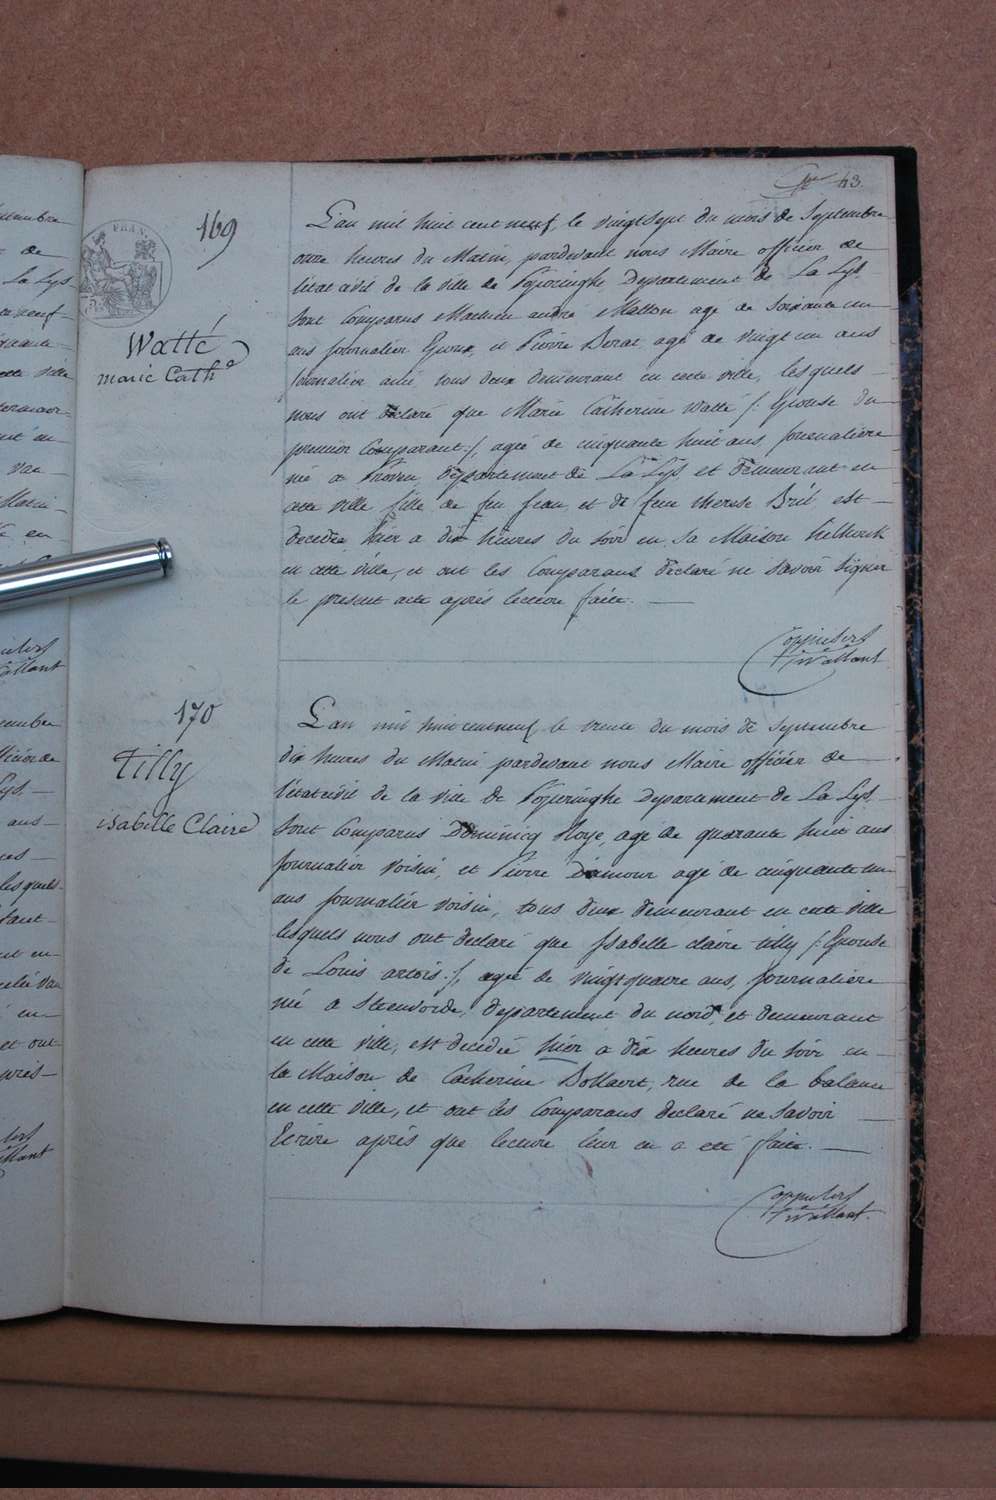 43.
169
FRAN
Watté
marie Cathe
L'an mil huit cent neuf, le vingt sept du mois de Septembre
onze heures du Matin, pardevant nous Maire officier de
l'état civil de la ville de Poperinghe Departement de La Lys
Sont Comparus Mathieu andré Matton agé de Soixante un
ans journalier Epoux, et Pierre Berat agé de vingt un ans
journalier ami, tous deux demeurant en cette ville, lesquels
nous ont declaré que Marie Catherine Watté /: Epouse du
premier Comparant :/, agée de cinquante huit ans, journaliere
né a Proven, departement de La Lys, et demeurant en
cette ville fille de feu jean, et de feue therese Bril est
decedée hier a dix heures du soir en sa Maison
en cette ville, et ont les Comparans declaré ne savoir Signer
le present acte après lecture faite.
170
tilly
isabelle Claire
L'an mil huit cent neuf, le trente du mois de Septembre
dix heures du Matin pardevant nous Maire officier de
l'état civil de la ville de Poperinghe Departement de La Lys
Sont Comparus Dominicq Hoye, agé de quarante huit ans
journalier voisin, et Pierre Damour agé de cinquante un
ans journalier voisin, tous deux demeurant en cette ville
lesquels nous ont declaré que Isabelle claire tilly /: Epouse
de Louis artois :/, agée de vingt quatre ans, journaliere
né a Steenvorde, departement du nord, et demeurant
en cette ville, est decedée hier a dix heures du soir en
la Maison de Catherine Bollaert, rue de la balance
en cette ville, et ont les Comparans declaré ne savoir
Ecrire après que lecture leur en a eté faite.